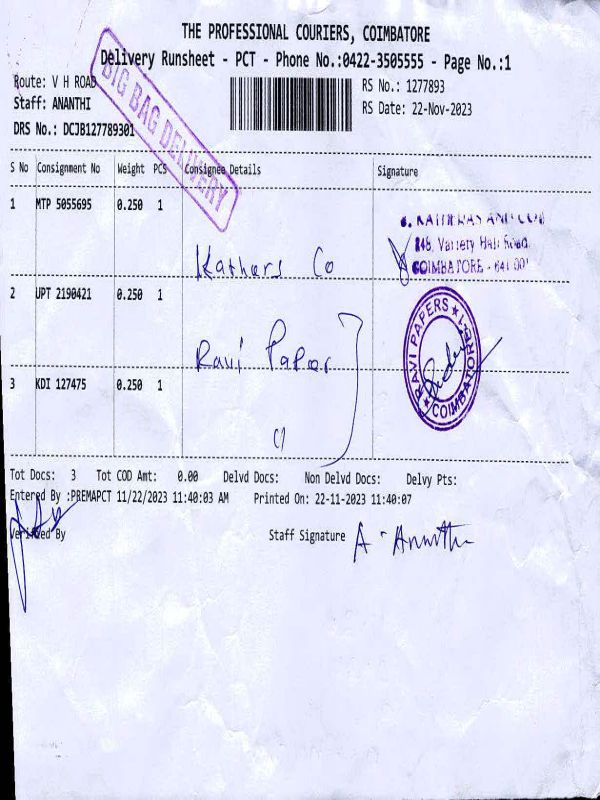 THE PROFESSIONAL COURIERS, COIMBATORE
Delivery Runsheet - PCT - Phone No.:0422-3505555 - Page No.:1
Route: V H ROAD
Staff: ANANTHI
DRS No.: DCJB127789301
RS No.: 1277893
RS Date: 22-Nov-2023
BIG BAG DELIVERY
S No Consignment No Weight PCS Consignee Details Signature
1 MTP 5055695 0.250 1
Kathers Co
248, Variety Hall Road,
COIMBATORE - 641 001
2 UPT 2190421 0.250 1
Ravi Paper
RAVI PAPERS
COIMBATORE-1
3 KDI 127475 0.250 1
Tot Docs: 3 Tot COD Amt: 0.00 Delvd Docs: Non Delvd Docs: Delvy Pts:
Entered By :PREMAPCT 11/22/2023 11:40:03 AM Printed On: 22-11-2023 11:40:07
Verified By
Staff Signature A. Ananthi